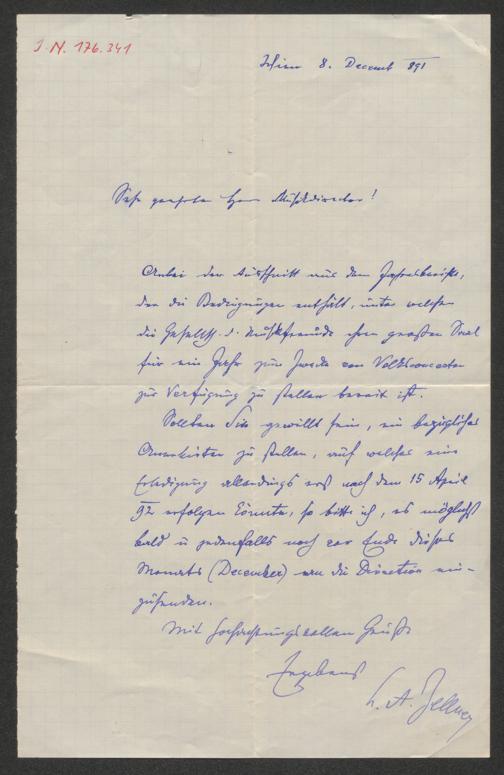 J. N. 176.341
Wien 8. Decemb 891
Sehr geehrter Herr Musikdirector!
Anbei der Ausschnitt aus dem Jahresberichte,
der die Bedingungen enthält, unter welchen
die Gesellsch. d. Musikfreunde ihren großen Saal
für ein Jahr zum Zwecke von Volksconcerten
zur Verfügung zu stellen bereit ist.
Sollten Sie gewillt sein, ein bezügliches
Anerbieten zu stellen, auf welches eine
Erledigung allerdings erst nach dem 15 April
92 erfolgen könnte, so bitte ich, es möglichst
bald u jedenfalls noch vor Ende dieses
Monats (December) an die Direction ein-
zusenden.
Mit hochachtungsvollem Gruße
Ergebenst
L. A. Zellner